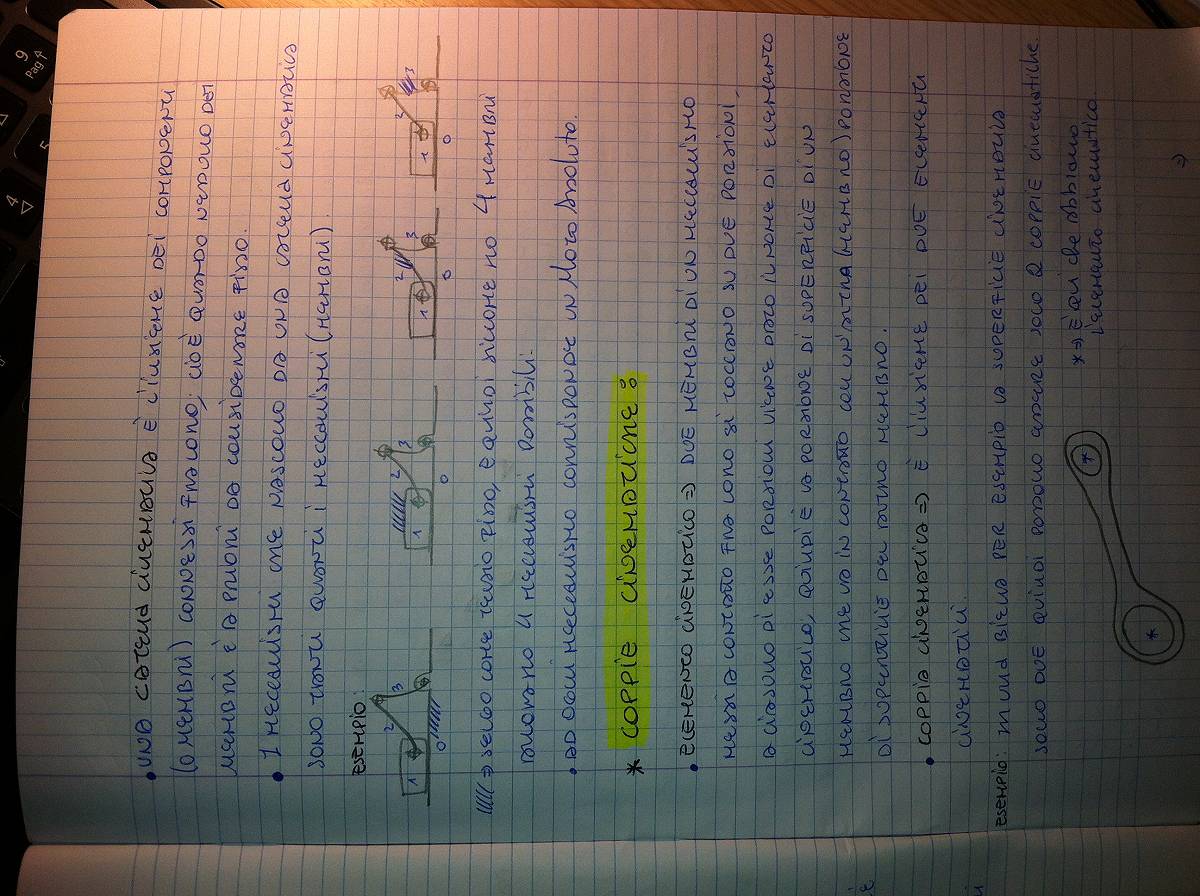 • UNA CATENA CINEMATICA È L'INSIEME DEI COMPONENTI
(O MEMBRI) CONNESSI FRA LORO; CIOÈ QUANDO NESSUNO DEI
MEMBRI È A PRIORI DA CONSIDERARE FISSO.
• I MECCANISMI CHE NASCONO DA UNA CATENA CINEMATICA
SONO TANTI QUANTI I MECCANISMI (MEMBRI).
ESEMPIO:
1 2 3 0
1 2 3 0
1 2 3 0
1 2 3 0
⇒ SEGNO COME TELAIO FISSO, E QUINDI SICCOME HO 4 MEMBRI
4 MECCANISMI POSSIBILI.
• AD OGNI MECCANISMO CORRISPONDE UN MOTO ASSOLUTO.
* COPPIE CINEMATICHE:
• ELEMENTO CINEMATICO ⇒ DUE MEMBRI DI UN MECCANISMO
MESSI A CONTATTO FRA LORO SI TOCCANO SU DUE PORZIONI,
A CIASCUNO DI ESSE PORZIONI VIENE DATO IL NOME DI ELEMENTO
CINEMATICO, QUINDI È LA PORZIONE DI SUPERFICIE DI UN
MEMBRO CHE VA IN CONTATTO CON UN'ALTRA (MEMBRO) PORZIONE
DI SUPERFICIE DEL MEMBRO.
• COPPIA CINEMATICA ⇒ È L'INSIEME DEI DUE ELEMENTI
CINEMATICI.
ESEMPIO: IN UNA BIELLA PER ESEMPIO LA SUPERFICIE CINEMATICA
SONO DUE QUINDI POSSONO ESSERE SOLO 2 COPPIE CINEMATICHE.
* ⇒ È QUI CHE ABBIAMO
L'ELEMENTO CINEMATICO.
* *
⇒
9
Pag
5
4